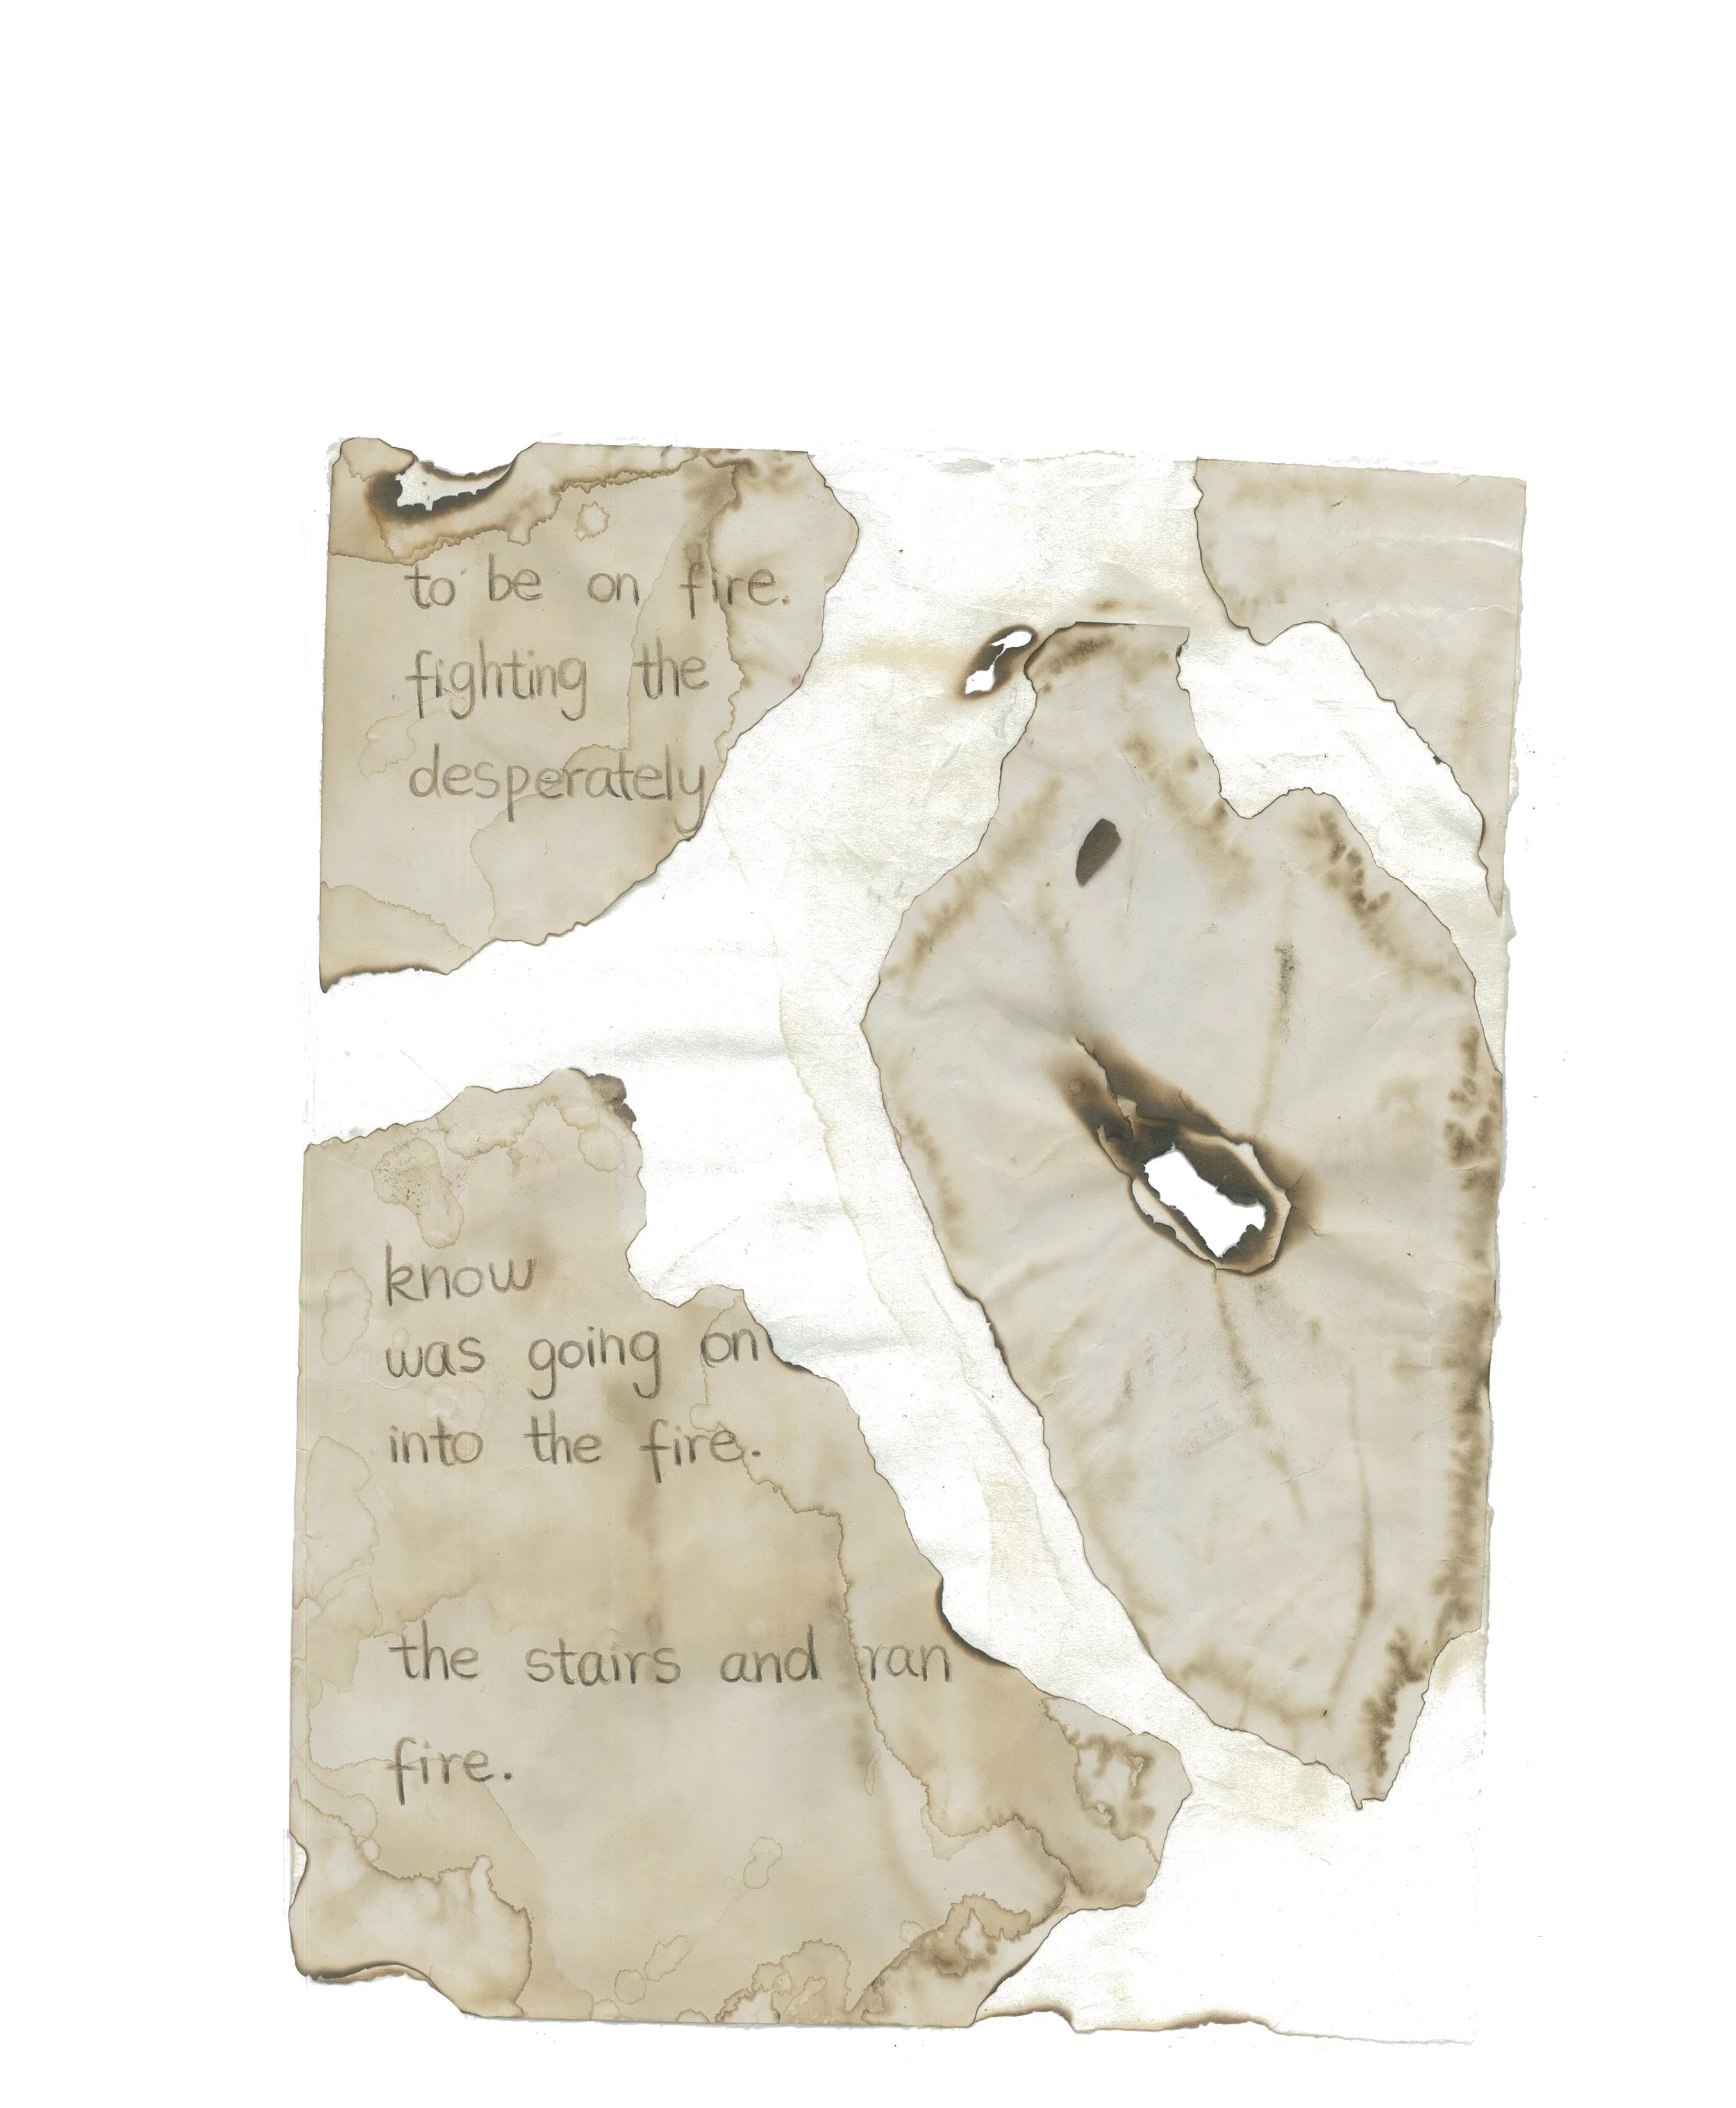 to be on fire.
fighting the
desperately
know
was going on
into the fire.
the stairs and ran
fire.